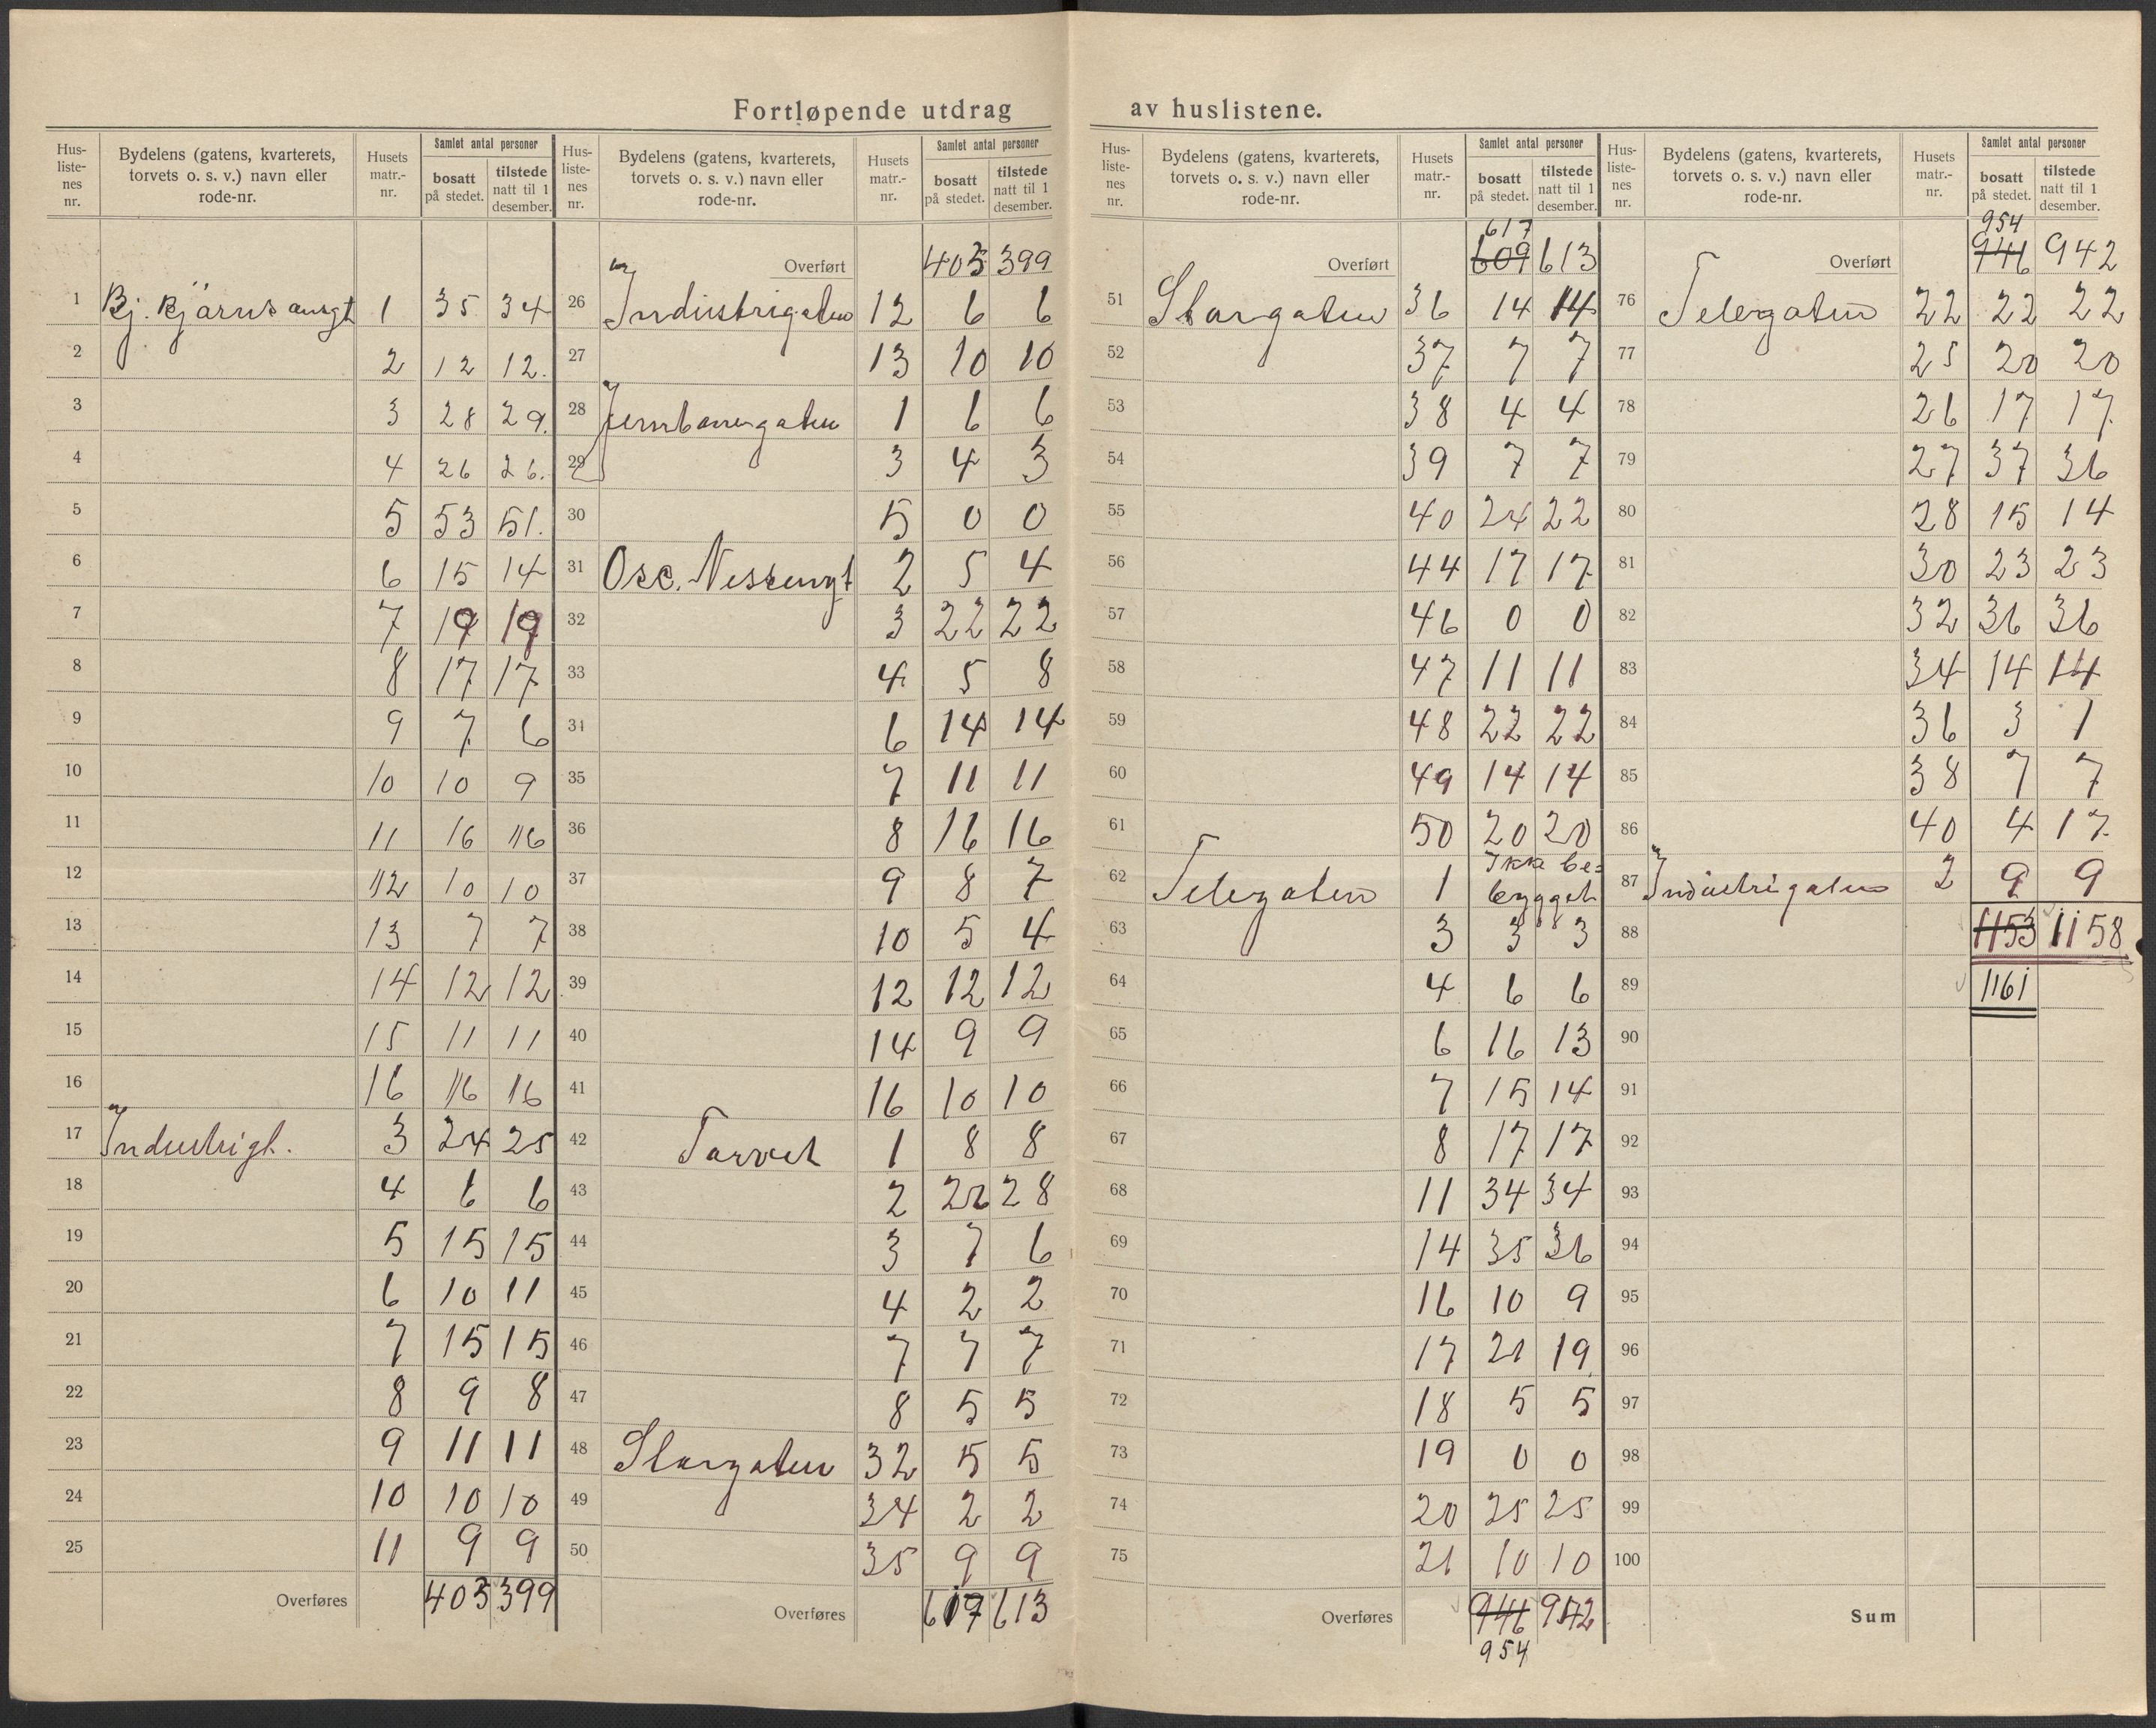 Fortløpende utdrag av huslistene.
Hus-listenes nr. Bydelens (gatens, kvarterets, torvets o. s. v.) navn eller rode-nr. Husets matr.-nr. Samlet antal personer bosatt på stedet. tilstede natt til 1 desember.
1 Bj. Bjärnsamgt 1 35 34
2 2 12 12.
3 3 28 29.
4 4 26 26.
5 5 53 51.
6 6 15 14
7 7 19 19
8 8 17 17
9 9 7 6
10 10 10 9
11 11 16 16
12 12 10 10
13 13 7 7
14 14 12 12
15 15 11 11
16 16 16 16
17 Industrigt. 3 24 25
18 4 6 6
19 5 15 15
20 6 10 11
21 7 15 15
22 8 9 8
23 9 11 11
24 10 10 10
25 11 9 9
Overføres 403 399
Hus-listenes nr. Bydelens (gatens, kvarterets, torvets o. s. v.) navn eller rode-nr. Husets matr.-nr. Samlet antal personer bosatt på stedet. tilstede natt til 1 desember.
Overført 403 399
26 Industrigaten 12 6 6
27 13 10 10
28 Jernbanegaten 1 6 6
29 3 4 3
30 5 0 0
31 Osc. Nissengt 2 5 4
32 3 22 22
33 4 5 8
34 6 14 14
35 7 11 11
36 8 16 16
37 9 8 7
38 10 5 4
39 12 12 12
40 14 9 9
41 16 10 10
42 Torvet 1 8 8
43 2 28
44 3 7 6
45 4 2 2
46 7 7 7
47 8 5 5
48 Storgaten 32 5 5
49 34 2 2
50 35 9 9
Overføres 617 613
Hus-listenes nr. Bydelens (gatens, kvarterets, torvets o. s. v.) navn eller rode-nr. Husets matr.-nr. Samlet antal personer bosatt på stedet. tilstede natt til 1 desember.
617
Overført 609 613
51 Storgaten 36 14 14
52 37 7 7
53 38 4 4
54 39 7 7
55 40 24 22
56 44 17 17
57 46 0 0
58 47 11 11
59 48 22 22
60 49 14 14
61 50 20 20
62 Telegaten 1 Ikke be=
bygget
63 3 3 3
64 4 6 6
65 6 16 13
66 7 15 14
67 8 17 17
68 11 34 34
69 14 35 36
70 16 10 9
71 17 21 19
72 18 5 5
73 19 0 0
74 20 25 25
75 21 10 10
Overføres 946 942
954
Hus-listenes nr. Bydelens (gatens, kvarterets, torvets o. s. v.) navn eller rode-nr. Husets matr.-nr. Samlet antal personer bosatt på stedet. tilstede natt til 1 desember.
954
Overført 946 942
76 Telegaten 22 22 22
77 25 20 20
78 26 17 17
79 27 37 36
80 28 15 14
81 30 23 23
82 32 36 36
83 34 14 14
84 36 3 1
85 38 7 7
86 40 4 17
87 Industrigaten 2 9 9
88 1153 1158
89 1161
90
91
92
93
94
95
96
97
98
99
100
Sum